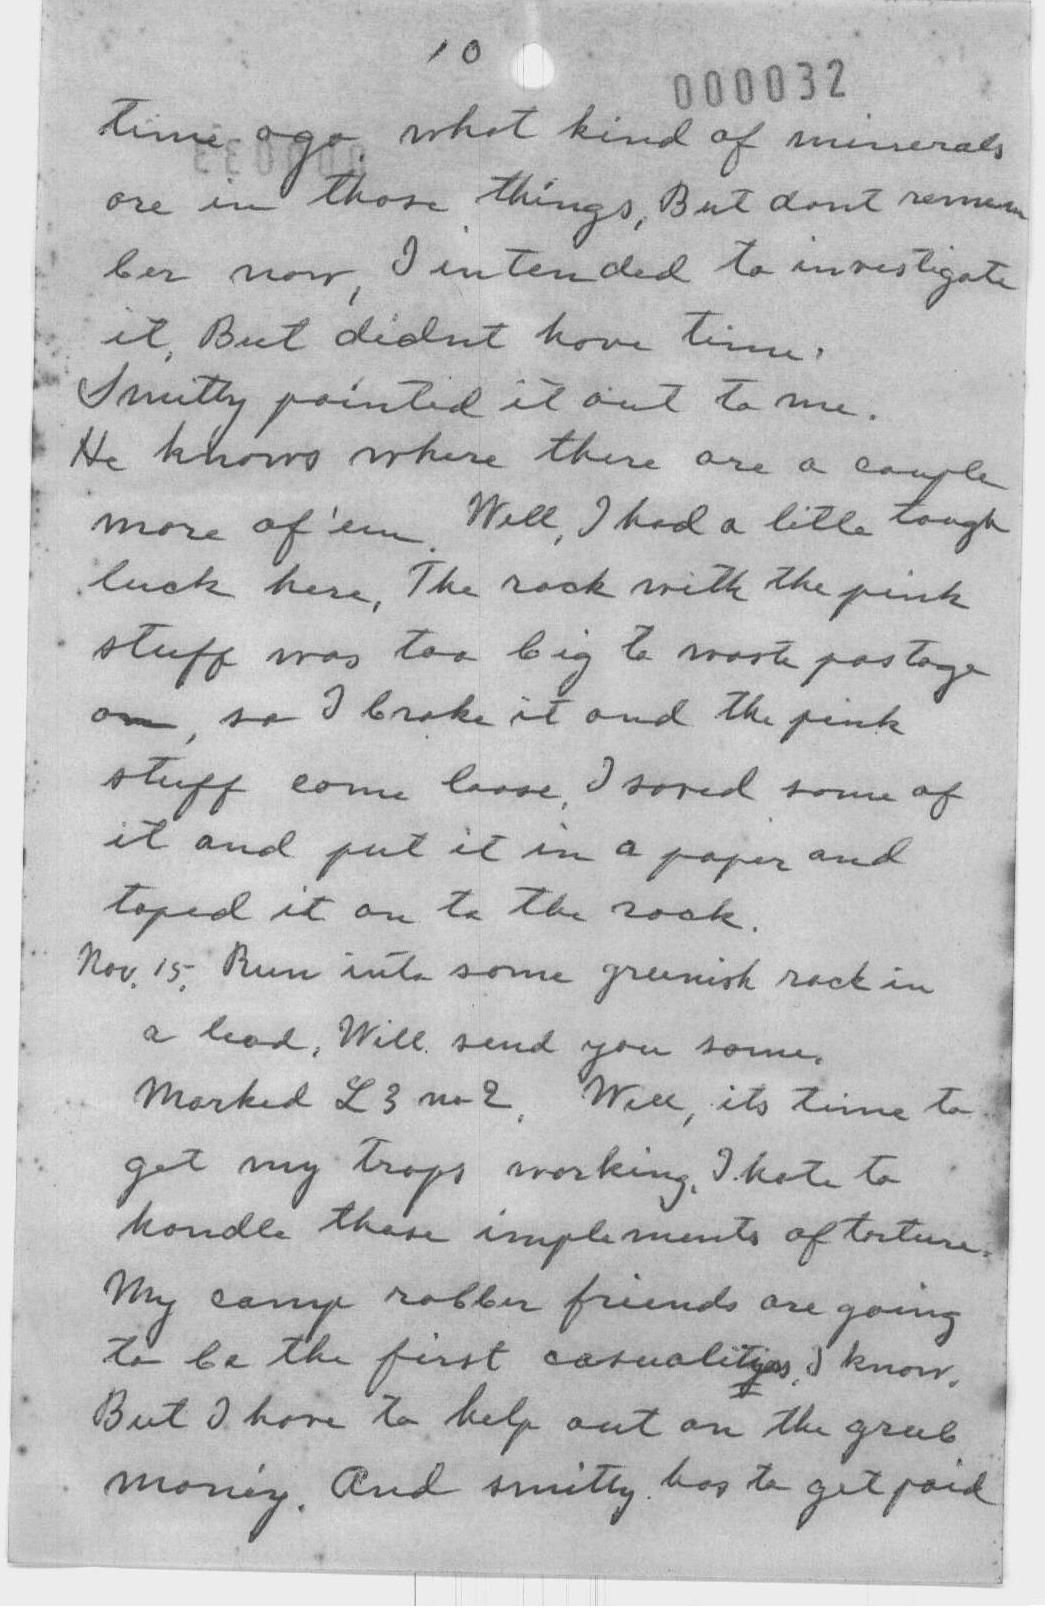 10
000032
time ago. what kind of minerals
are in those things, But dont remem
ber now, I intended to investigate
it, But didnt have time.
Smitty pointed it out to me.
He knows where there are a couple
more of 'em. Well, I had a litle tough
luck here, The rock with the pink
stuff was too big to waste postage
on, so I broke it and the pink
stuff come loose, I saved some of
it and put it in a paper and
taped it on to the rock.
Nov. 15, Run into some greenish rock in
a lead, Will send you some.
Marked L3 no 2, Well, its time to
get my traps working, I hate to
handle those implements of torture.
My camp robber friends are going
to be the first I know.
But I have to help out on the grub
money. And smitty has to get paid